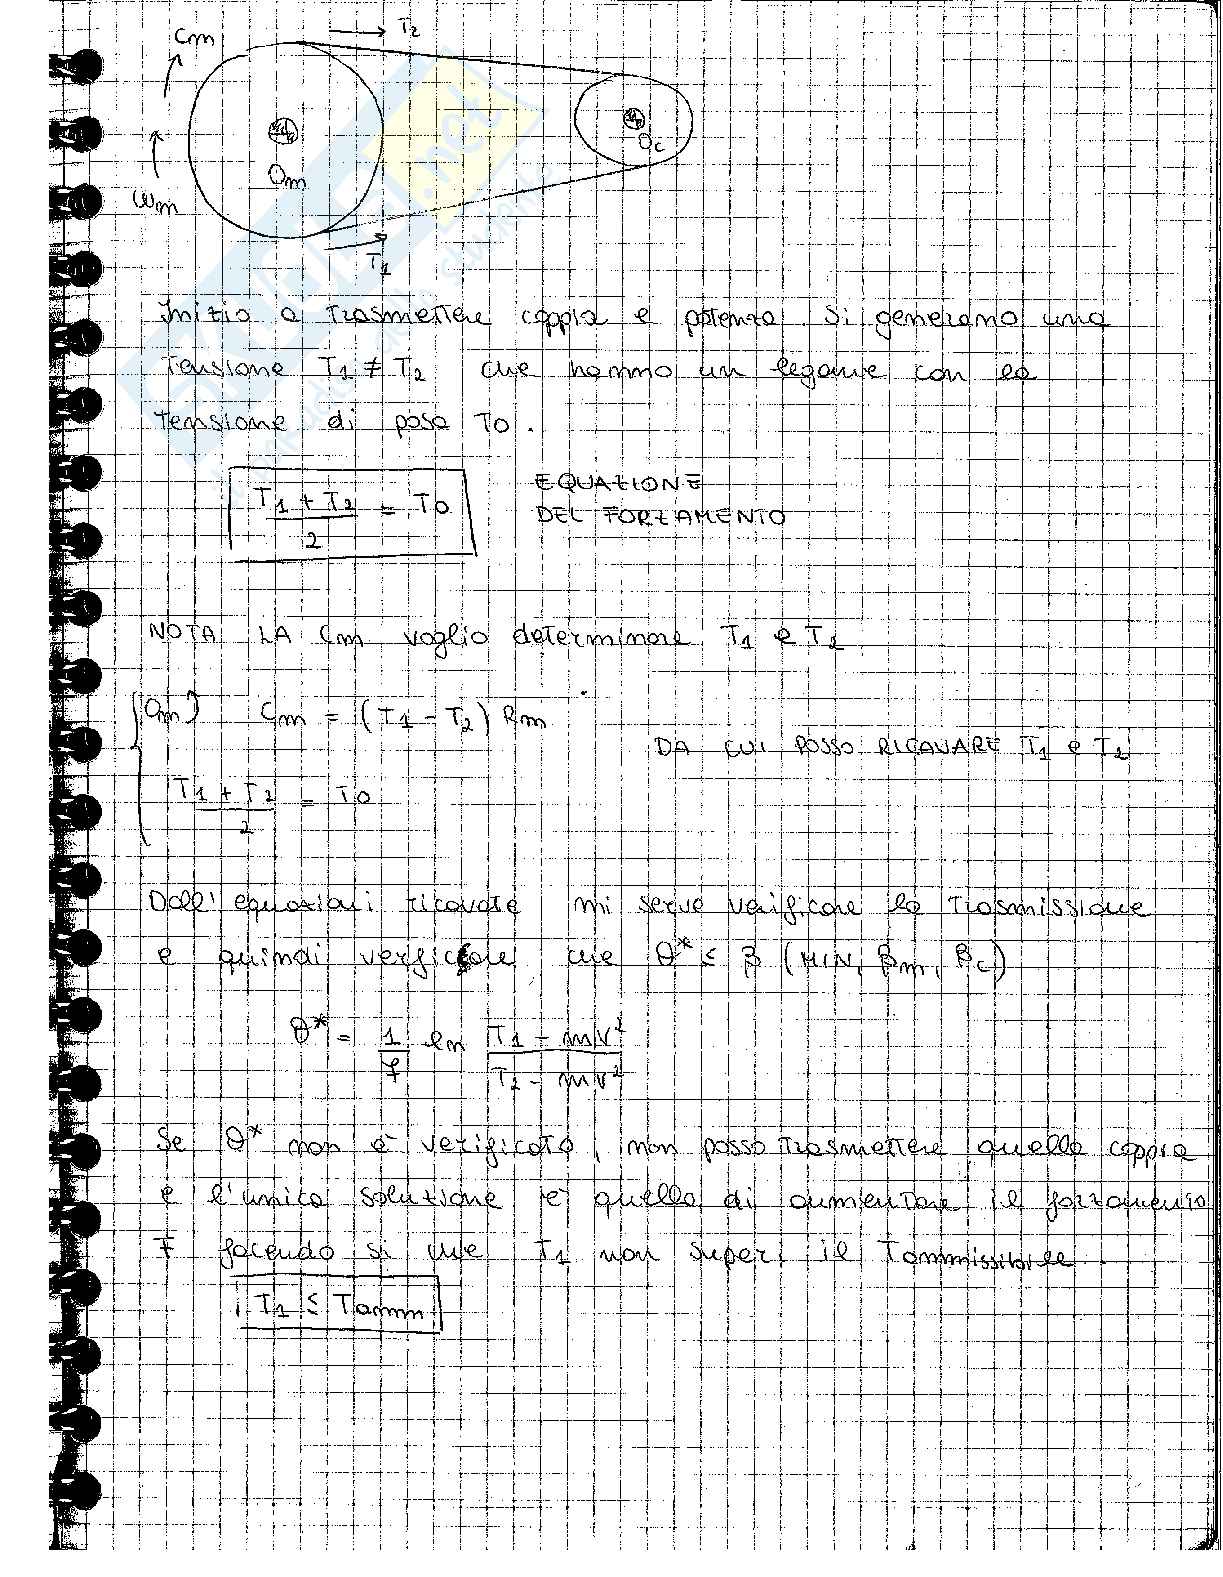 Cm
T2
Om
Oc
ωm
T1
Inizio a trasmettere coppia e potenza si generano una
tensione T1 ≠ T2 che hanno un legame con la
tensione di posa T0.
T1 + T2 / 2 = T0
EQUAZIONE
DEL FORZAMENTO
NOTA LA Cm voglio determinare T1 e T2
Om) Cm = (T1 - T2) Rm
DA CUI POSSO RICAVARE T1 e T2
T1 + T2 / 2 = T0
Dall'equazioni ricavate mi serve verificare la trasmissione
e quindi verificare che θ* ≤ β (MIN, βm, βc)
θ* = 1/f ln T1 - mv² / T2 - mv²
Se θ* non è verificato, non posso trasmettere quella coppia
e l'unica soluzione è quella di aumentare il forzamento
F facendo si che T1 non superi il Tammissibile
T1 ≤ Tamm